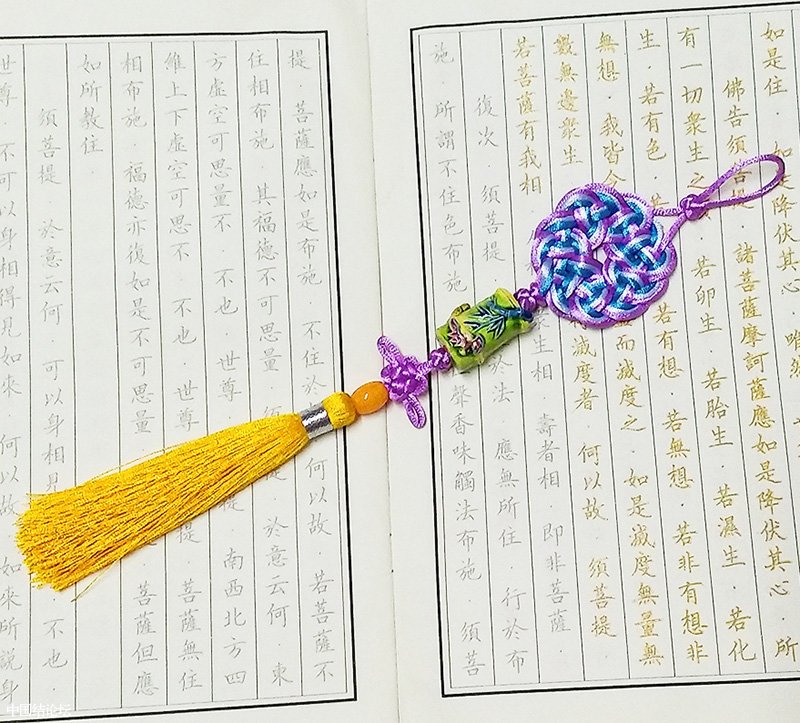 如是住．如是降伏其心．唯然．
佛告須菩提．諸菩薩摩訶薩應如是降伏其心．所
有一切眾生之 若卵生．若胎生．若濕生．若化
生．若有色．若 若有想．若無想．若非有想非
無想．我皆令 而滅度之．如是滅度無量無
數無邊眾生 滅度者．何以故．須菩提
若菩薩有我相 生相．壽者相．即非菩薩．
復次．須菩提． 於法．應無所住．行於布
施．所謂不住色布施 聲香味觸法布施．須菩
提．菩薩應如是布施．不住於 何以故．若菩薩不
住相布施．其福德不可思量． 於意云何．東
方虛空可思量不．不也．世尊． 提．南西北方四
維上下虛空可思不．不也．世尊 提．菩薩無住
相布施．福德亦復如是不可思量 菩薩但應
如所教住．
須菩提．於意云何．可以身相見 不也．
世尊．不可以身相得見如來．何以故．如來所說身
中国结论坛